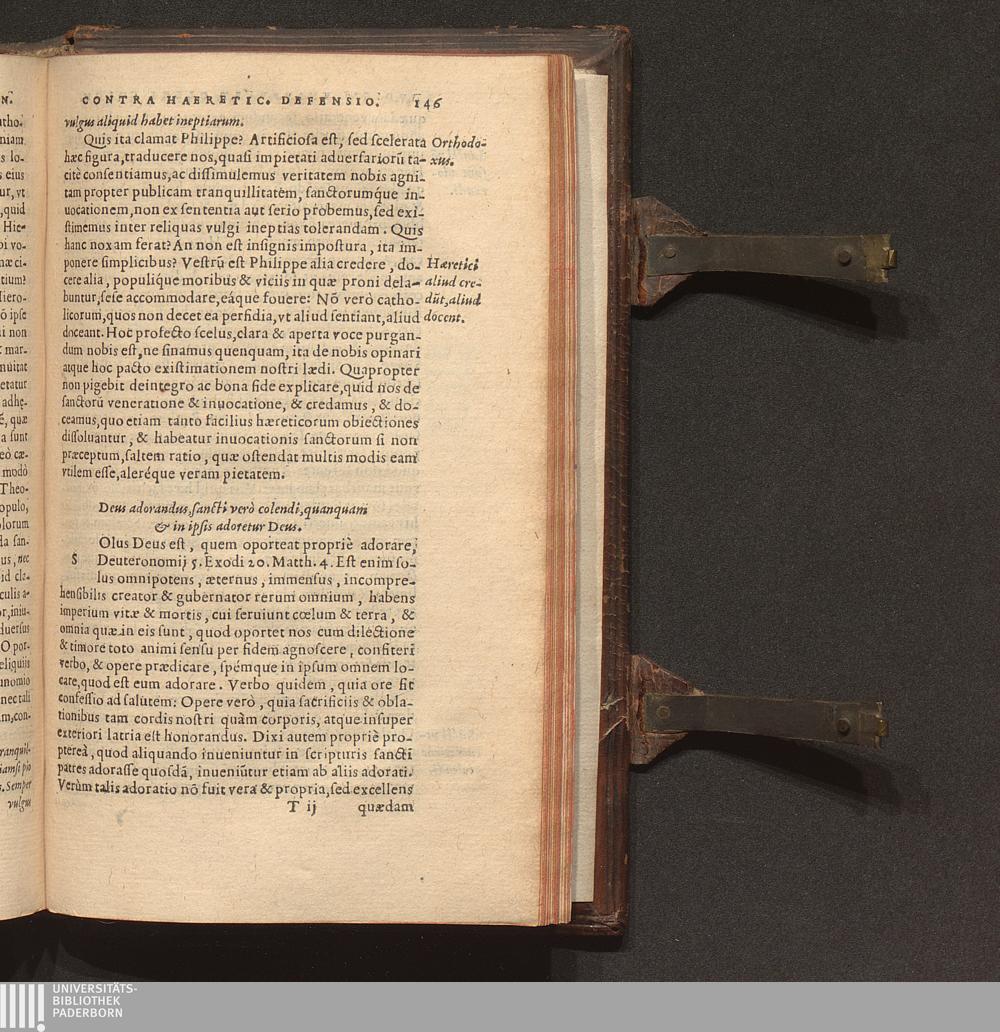 N.
tho.
niam
s lo-
s eius
ur, vt
,quid
Hie-
oi vo-
næ ci-
tium?
Iiero-
õ ipse
i non
mar-
nuitat
etatur
adhę-
é, quæ
a sunt
eò cæ-
modò
Theo-
opulo,
olorum
la san-
us, nec
id cle-
culis a-
or,iniu-
duersus
O por-
eliquiis
unomio
nec tali
m,con-
ranquil-
iamsi pio
s. Semper
vulgus
CONTRA HAERETIC. DEFENSIO. 146
vulgus aliquid habet ineptiarum.
Quis ita clamat Philippe? Artificiosa est, sed scelerata
hæc figura,traducere nos,quasi impietati aduersariorũ ta-
citè consentiamus,ac dissimulemus veritatem nobis agni-
tam propter publicam tranquillitatem, sanctorumq́ue in-
uocationem,non ex sententia aut serio probemus,sed exi-
stimemus inter reliquas vulgi ineptias tolerandam. Quis
hanc noxam ferat? An non est insignis impostura, ita im-
ponere simplicibus? Vestrũ est Philippe alia credere, do-
cere alia, populiq́ue moribus & viciis in quæ proni dela-
buntur,sese accommodare,eáque fouere: Nõ verò catho-
licorum,quos non decet ea perfidia,vt aliud sentiant,aliud
doceant. Hoc profecto scelus,clara & aperta voce purgan-
dum nobis est,ne sinamus quenquam, ita de nobis opinari
atque hoc pacto existimationem nostri lædi. Quapropter
non pigebit deintegro ac bona fide explicare,quid nos de
sanctorũ veneratione & inuocatione, & credamus, & do-
ceamus,quo etiam tanto facilius hæreticorum obiectiones
dissoluantur, & habeatur inuocationis sanctorum si non
præceptum,saltem ratio, quæ ostendat multis modis eam
vtilem esse,aleréque veram pietatem.
Orthodo-
xus.
Hæretici
aliud cre-
dũt,aliud
docent.
Deus adorandus,sancti verò colendi,quanquam
& in ipsis adoretur Deus.
S Olus Deus est, quem oporteat propriè adorare,
Deuteronomij 5. Exodi 20. Matth. 4. Est enim so-
lus omnipotens, æternus, immensus, incompre-
hensibilis creator & gubernator rerum omnium, habens
imperium vitæ & mortis, cui seruiunt cœlum & terra, &
omnia quæ in eis sunt, quod oportet nos cum dilectione
& timore toto animi sensu per fidem agnoscere, confiteri
verbo, & opere prædicare, spémque in ipsum omnem lo-
care,quod est eum adorare. Verbo quidem, quia ore fit
confessio ad salutem: Opere verò, quia sacrificiis & obla-
tionibus tam cordis nostri quàm corporis, atque insuper
exteriori latria est honorandus. Dixi autem propriè pro-
ptereà, quod aliquando inueniuntur in scripturis sancti
patres adorasse quosdã, inueniũtur etiam ab aliis adorati.
Verùm talis adoratio nõ fuit vera & propria,sed excellens
T ij quædam
UNIVERSITÄTS-
BIBLIOTHEK
PADERBORN